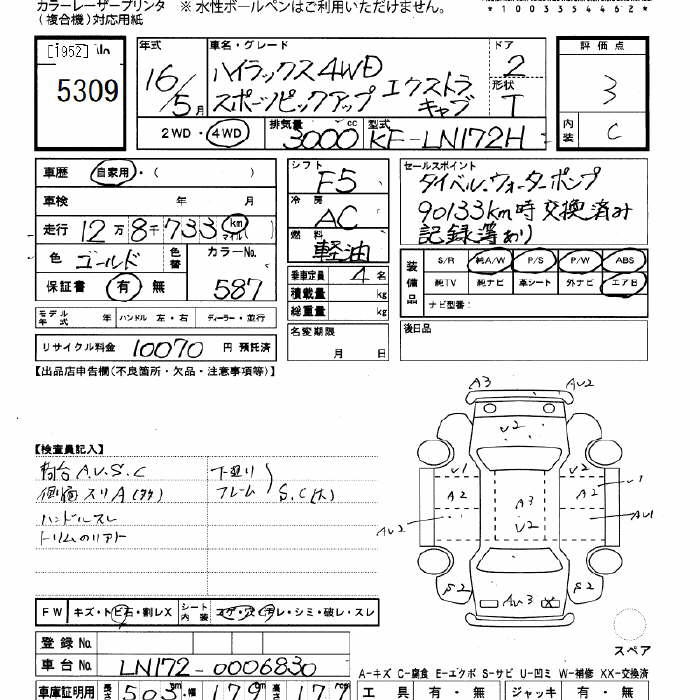 カラーレーザープリンタ ※ 水性ボールペンはご利用いただけません。
(複合機)対応用紙
*1003354462*
[1952]
5309
年式 16/5月
車名・グレード ハイラックス4WD エクストラ
スポーツピックアップ キャブ
ドア 2
形状 T
評価点 3
内装 C
2WD・4WD
排気量 3000cc
型式 KF-LN172H
車歴 自家用・( )
車検 年 月
走行 12万8千733 km マイル
色 ゴールド 色番 カラーNo. 587
保証書 有 無
シフト F5
冷房 AC
燃料 軽油
乗車定員 4名
積載量 kg
総重量 kg
セールスポイント
タイベル、ウォーターポンプ
90133km時交換済み
記録簿あり
装備品 S/R 純A/W P/S P/W ABS
純TV 純ナビ 革シート 外ナビ エアB
ナビ型番:
モデル年式 年 ハンドル 左・右 ディーラー・並行
名変期限 月 日
後日品
リサイクル料金 10070 円 預託済
【出品店申告欄(不良箇所・欠品・注意事項等)】
【検査員記入】
A.U.S.C 下廻り
スリA フレーム S.C(大)
ハンドルスレ
A3 AU2
U2
U1 U1
A2 A3 A2
AU2 U2 AU1
S2 AU3 X S2
FW キズ・トビ石・割レX シート内装 コゲ・穴・汚レ・シミ・破レ・スレ
スペア
登録No.
車台No. LN172-0006830
A-キズ C-腐食 E-エクボ S-サビ U-凹ミ W-補修 XX-交換済
車庫証明用 長さ 503cm 幅 179cm 高さ
工具 有・無 ジャッキ 有・無